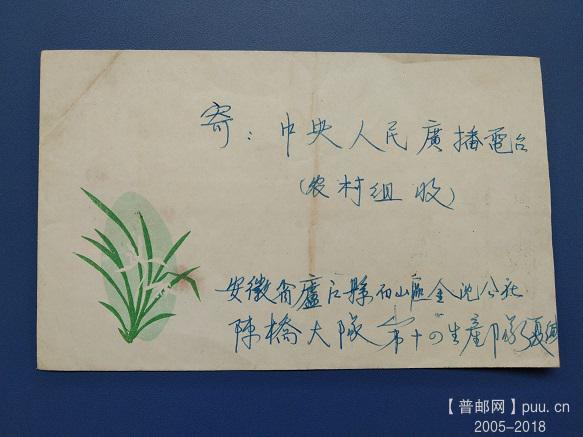 寄：中央人民廣播電台
（农村组 收）
安徽省廬江縣石山區金沈公社
陳橋大隊 第十四生產隊 夏
【普邮网】puu.cn
2005-2018